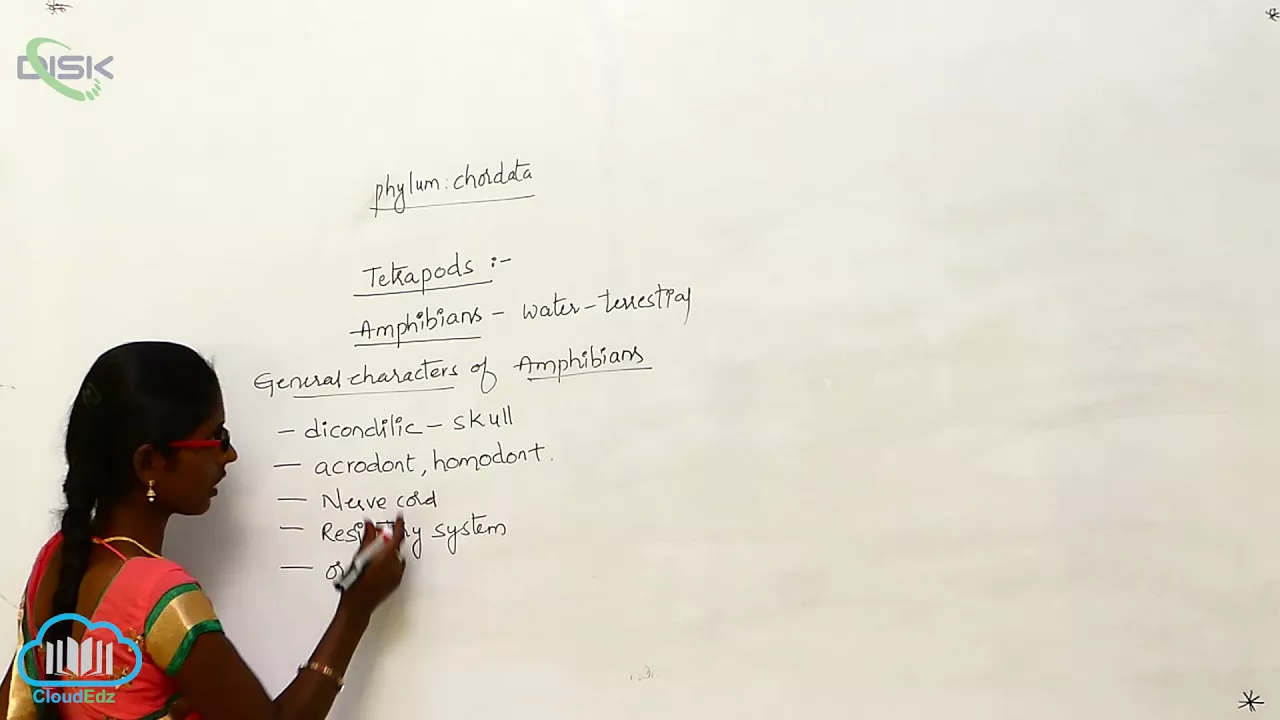 DISK
phylum : chordata
Tetrapods :-
Amphibians - water - terrestial
General characters of Amphibians
- dicondilic - skull
- acrodont, homodont.
- Nerve cord
- system
CloudEdz